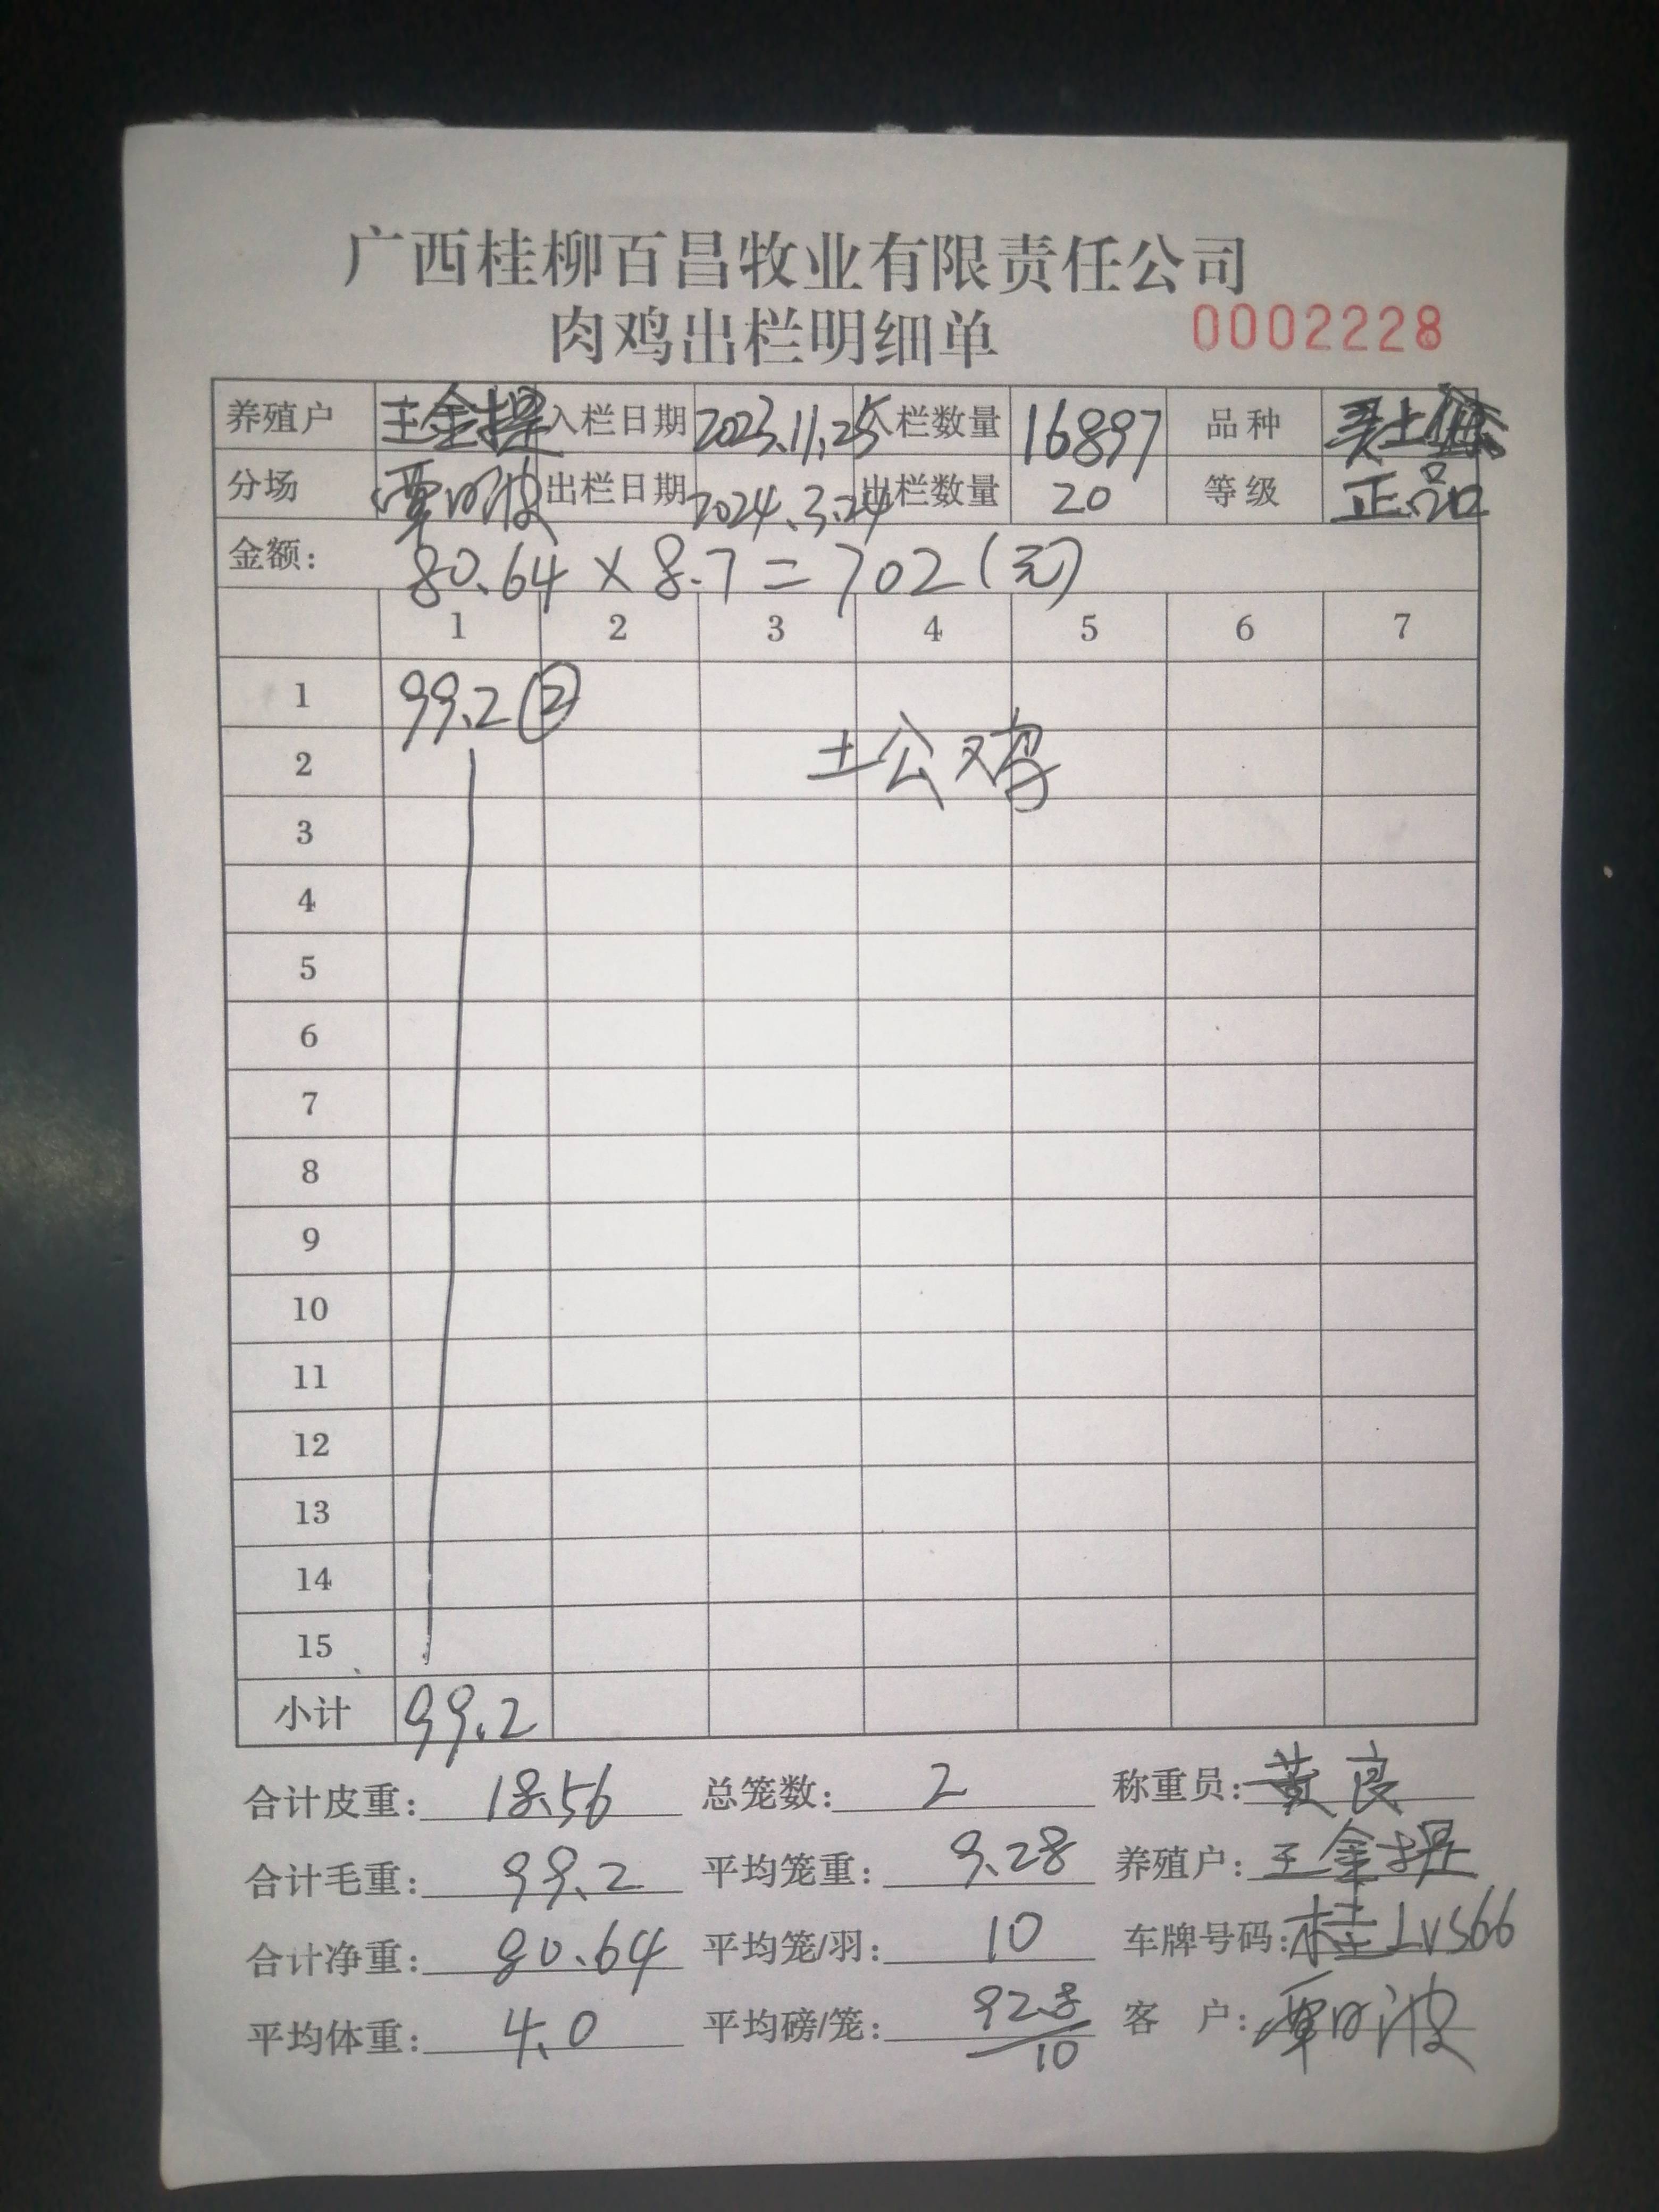 广西桂柳百昌牧业有限责任公司
肉鸡出栏明细单 0002228
养殖户 王金提 入栏日期 2023.11.25 入栏数量 16897 品种
分场 覃明波 出栏日期 2024.3.24 出栏数量 20 等级 正品
金额: 80.64×8.7=702(元)
1 2 3 4 5 6 7
1 99.2 ②
2 土公鸡
3
4
5
6
7
8
9
10
11
12
13
14
15
小计 99.2
合计皮重: 18.56 总笼数: 2 称重员: 黄良
合计毛重: 99.2 平均笼重: 9.28 养殖户: 王金提
合计净重: 80.64 平均笼/羽: 10 车牌号码: 桂LVS66
平均体重: 4.0 平均磅/笼: 10 客户: 覃明波